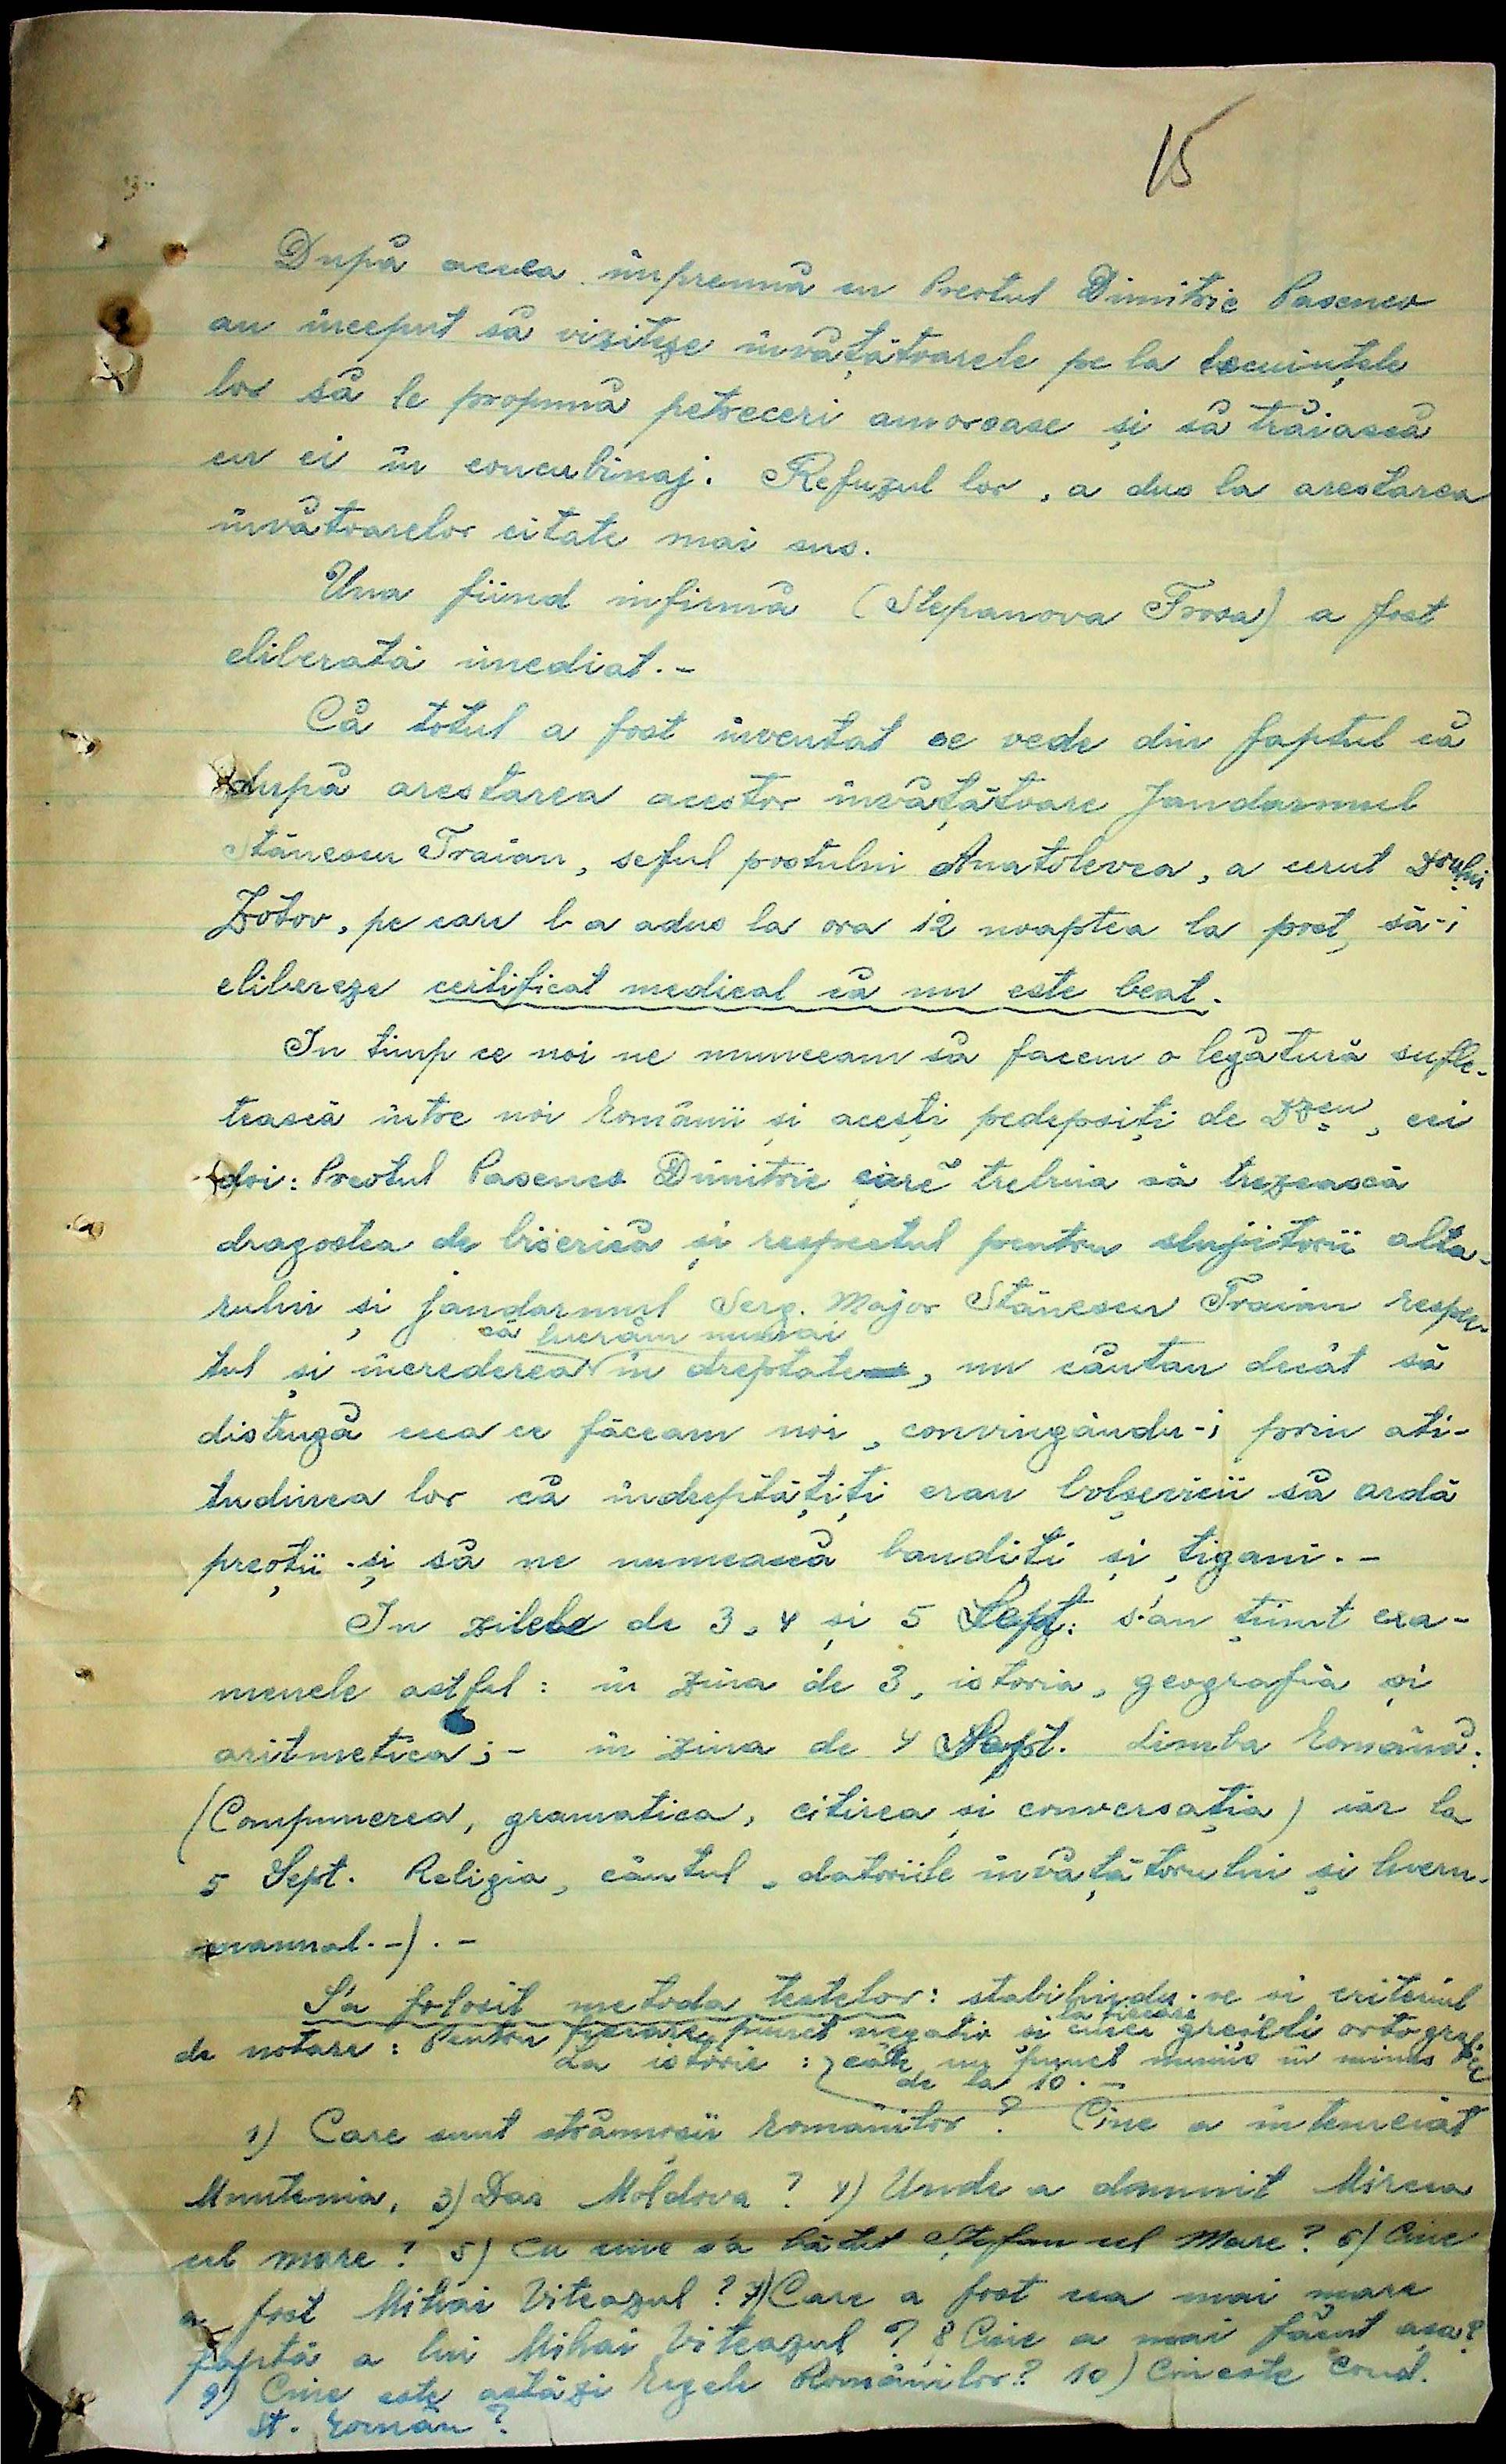 15
După aceea împreună cu Preotul Dimitrie Pasenco
au început să viziteze învățătoarele pe la locuințele
lor să le propună petreceri amoroase și să trăiască
cu ei în concubinaj. Refuzul lor, a dus la arestarea
învătoarelor citate mai sus.
Una fiind infirmă (Stepanova Frosa) a fost
eliberată imediat.-
Că totul a fost inventat se vede din faptul că
după arestarea acestor învățătoare Jandarmul
Stănescu Traian, seful postului Anatolevca, a cerut Drului
Zotov, pe care l-a adus la ora 12 noaptea la post, să-i
elibereze certificat medical că nu este beat.
In timp ce noi ne munceam să facem o legătură sufle-
tească între noi Românii și acești pedepsiți de Dzeu, cei
doi: Preotul Pasenco Dimitrie care trebuia să trezească
dragostea de biserică și respectul pentru slujitorii alta-
rului și jandarmul Serg. Major Stănescu Traian respec-
că lucrăm numai
tul și încrederea în dreptate, nu căutau decât să
distrugă ceea ce făceam noi, convingându-i prin ati-
tudinea lor că îndreptățiți erau bolșevicii să ardă
preoții și să ne numească bandiți și țigani.-
In zilele de 3, 4 și 5 Sept. s'au ținut exa-
menele astfel: în ziua de 3, istoria, geografia și
aritmetica;- în ziua de 4 Sept. Limba Română:
(Compunerea, gramatica, citirea și conversația) iar la
5 Sept. Religia, cântul, datoriile învățătorului și lucru-
manual.-).-
S'a folosit metoda testelor: stabilindu-se și criteriul
la fiecare
de notare: Pentru fiecare punct negativ și cinci greșeli ortografice
La istorie: câte un punct minus în minus
de la 10.-
1) Care sunt strămoșii Românilor? Cine a întemeiat
Muntenia, 3) Dar Moldova? 4) Unde a domnit Mircea
cel mare? 5) Cu cine s'a bătut Ștefan cel Mare? 6) Cine
a fost Mihai Viteazul? 7) Care a fost cea mai mare
faptă a lui Mihai Viteazul? 8 Cine a mai făcut așa?
9) Cine este astăzi Regele Românilor? 10) Cine este Cond.
St. Român?